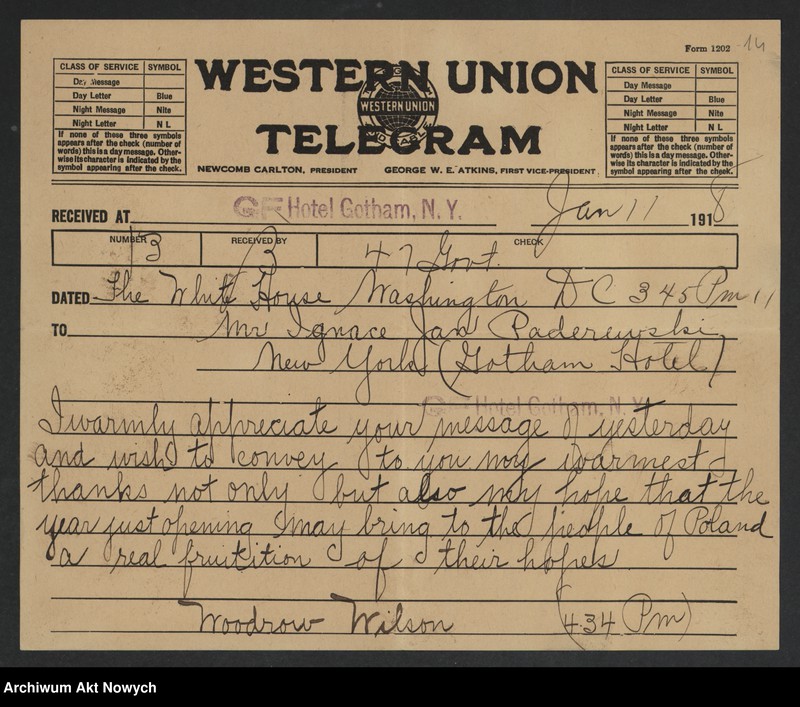 Form 1202
14
CLASS OF SERVICE SYMBOL
Day Message
Day Letter Blue
Night Message Nite
Night Letter N L
If none of these three symbols
appears after the check (number of
words) this is a day message. Other-
wise its character is indicated by the
symbol appearing after the check.
WESTERN UNION
WESTERN UNION
TELEGRAM
NEWCOMB CARLTON, PRESIDENT GEORGE W. E. ATKINS, FIRST VICE-PRESIDENT
CLASS OF SERVICE SYMBOL
Day Message
Day Letter Blue
Night Message Nite
Night Letter N L
If none of these three symbols
appears after the check (number of
words) this is a day message. Other-
wise its character is indicated by the
symbol appearing after the check.
RECEIVED AT Hotel Gotham, N. Y. Jan 11 1918
NUMBER RECEIVED BY CHECK
13 B 47 Govt.
DATED The White House Washington D C 3 45 Pm 11
TO Mr Ignace Jan Paderewski
New York (Gotham Hotel)
Hotel Gotham, N. Y.
I warmly appreciate your message of yesterday
and wish to convey to you my warmest
thanks not only but also my hope that the
year just opening may bring to the people of Poland
a real fruitition of their hopes
Woodrow Wilson (4 34 Pm)
Archiwum Akt Nowych